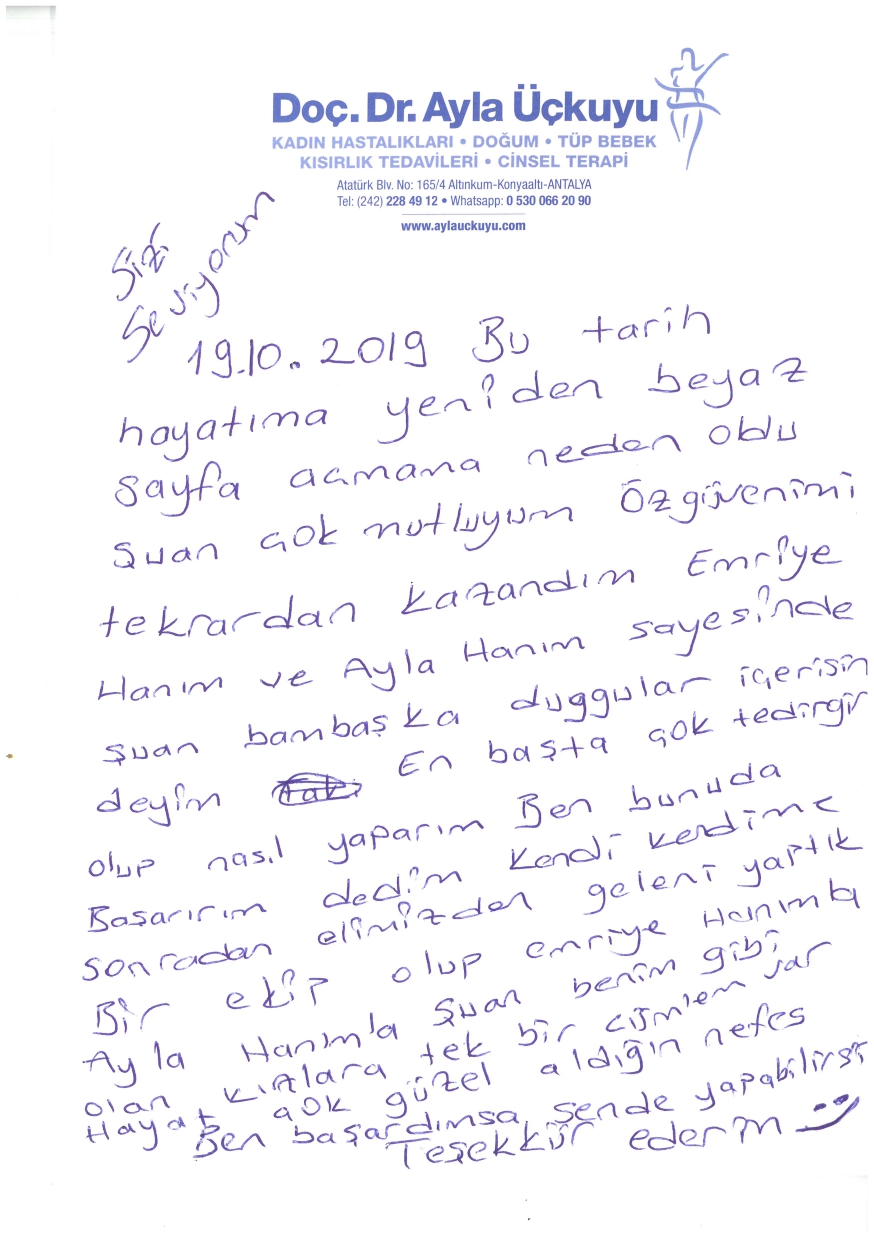 Doç. Dr. Ayla Üçkuyu
KADIN HASTALIKLARI • DOĞUM • TÜP BEBEK
KISIRLIK TEDAVİLERİ • CİNSEL TERAPİ
Atatürk Blv. No: 165/4 Altınkum-Konyaaltı-ANTALYA
Tel: (242) 228 49 12 • Whatsapp: 0 530 066 20 90
www.aylauckuyu.com
Sizi
Seviyorum
19.10.2019 Bu tarih
hayatıma yeniden beyaz
sayfa açmama neden oldu
şuan çok mutluyum Özgüvenimi
tekrardan kazandım Emriye
Hanım ve Ayla Hanım sayesinde
şuan bambaşka duygular içerisin
deyim En başta çok tedirgin
olup nasıl yaparım Ben bunuda
Başarırım dedim kendi kendime
sonradan elimizden geleni yaptık
Bir ekip olup emriye Hanımla
Ayla Hanım'la şuan benim gibi
olan kızlara tek bir cümlem var
Hayat çok güzel aldığın nefes
Ben başardımsa sende yapabilirsi
Teşekkür ederim